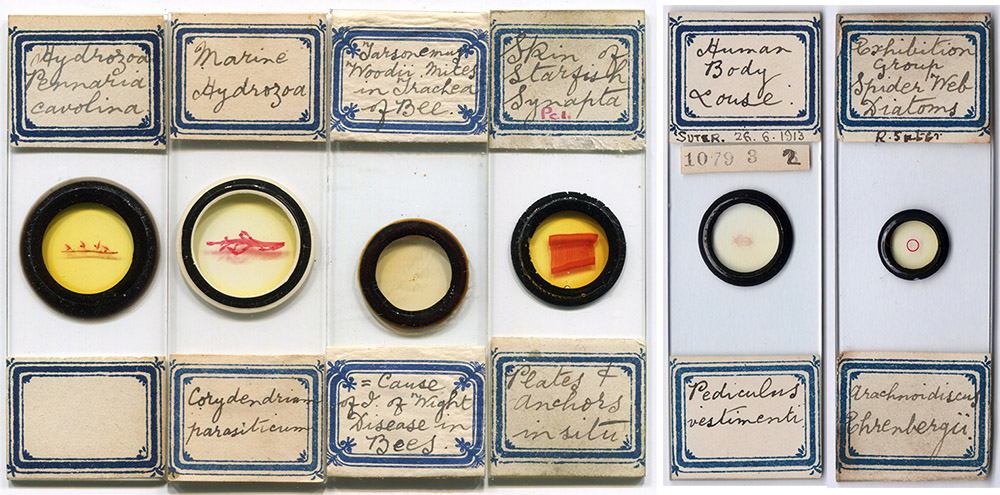 Hydrozoa
Pennaria
cavolina
Marine
Hydrozoa
Corydendrium
parasiticum
Tarsonemus
Woodii, Mites
in Trachea
of Bee.
= Cause
of I. of Wight
Disease in
Bees.
Skin of
Starfish
Synapta
Pcl.
Plates &
anchors
in situ
Human
Body
Louse.
SUTER. 26.6.1913
1079 3 2
Pediculus
vestimenti
Exhibition
Group
Spider Web
Diatoms
R. Suter
Arachnoidiscus
Ehrenbergii.